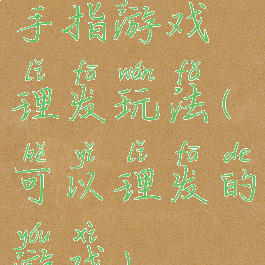 手指游戏
lǐ fā wán fǎ
理发玩法(
kě yǐ lǐ fā de
可以理发的
yóu xì
游戏)